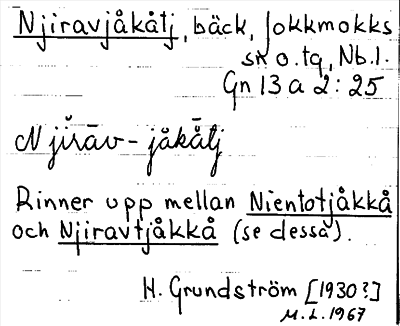 Njiravjåkåtj, bäck, Jokkmokks
sk o. tg, Nb.l.
Gn 13 a 2:25
Njĭrāv-jåkā̊tj
Rinner upp mellan Nientotjåkkå
och Njiravtjåkkå (se dessa).
H. Grundström [1930?]
M.L. 1967